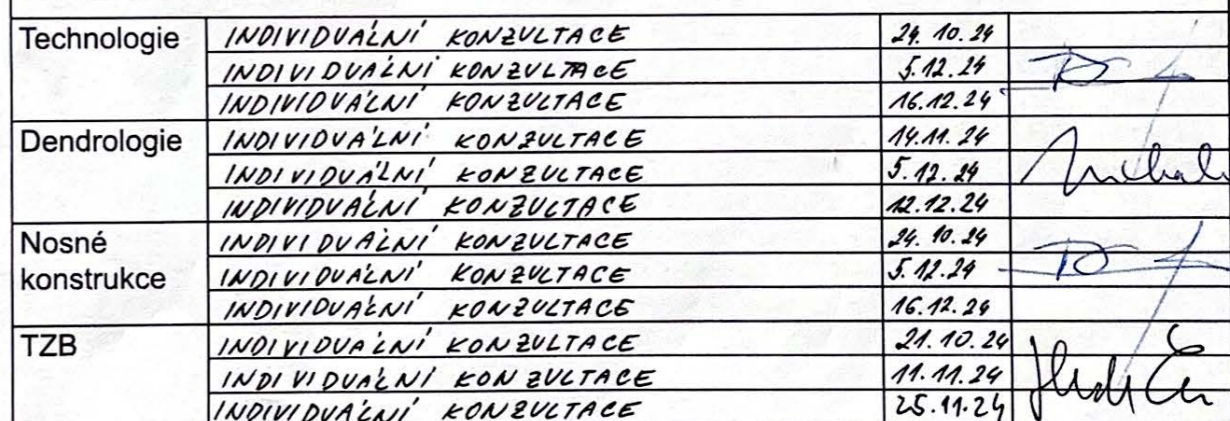 Technologie INDIVIDUÁLNÍ KONZULTACE 24. 10. 24
INDIVIDUÁLNÍ KONZULTACE 5.12.24
INDIVIDUÁLNÍ KONZULTACE 16.12.24
Dendrologie INDIVIDUÁLNÍ KONZULTACE 14.11.24
INDIVIDUÁLNÍ KONZULTACE 5.12.24
INDIVIDUÁLNÍ KONZULTACE 12.12.24
Nosné INDIVIDUÁLNÍ KONZULTACE 24.10.24
konstrukce INDIVIDUÁLNÍ KONZULTACE 5.12.24
INDIVIDUÁLNÍ KONZULTACE 16.12.24
TZB INDIVIDUÁLNÍ KONZULTACE 21.10.24
INDIVIDUÁLNÍ KONZULTACE 11.11.24
INDIVIDUÁLNÍ KONZULTACE 25.11.24